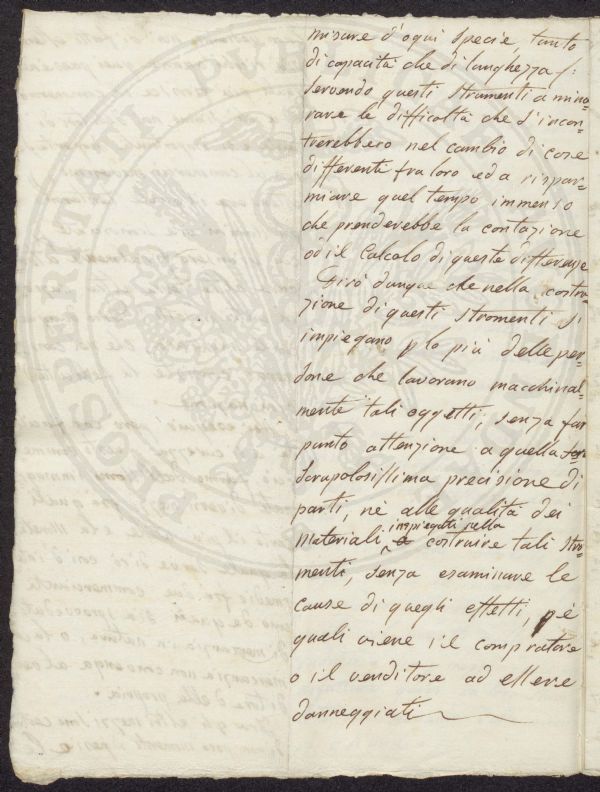 misure d'ogni specie, tanto
di capacità che di lunghezza /:
servendo questi strumenti a mino=
rare le difficoltà che s'incon=
trerebbero nel cambio di cose
differenti fra loro ed a rispar=
miare quel tempo immenso
che prenderebbe la contazione
od il Calcolo di queste differenze
Dirò dunque che nella costru=
zione di questi stromenti si
impiegano p lo più delle per=
sone che lavorano macchinal=
mente tali oggetti, senza far
punto attenzione a quella
scrupolosissima precisione di
parti, nè alle qualità dei
materiali impiegati nella
costruire tali stro=
menti, senza esaminare le
cause di quegli effetti, pè
quali viene il compratore
o il venditore ad essere
danneggiati
PROSPERITATI PUBLICAE